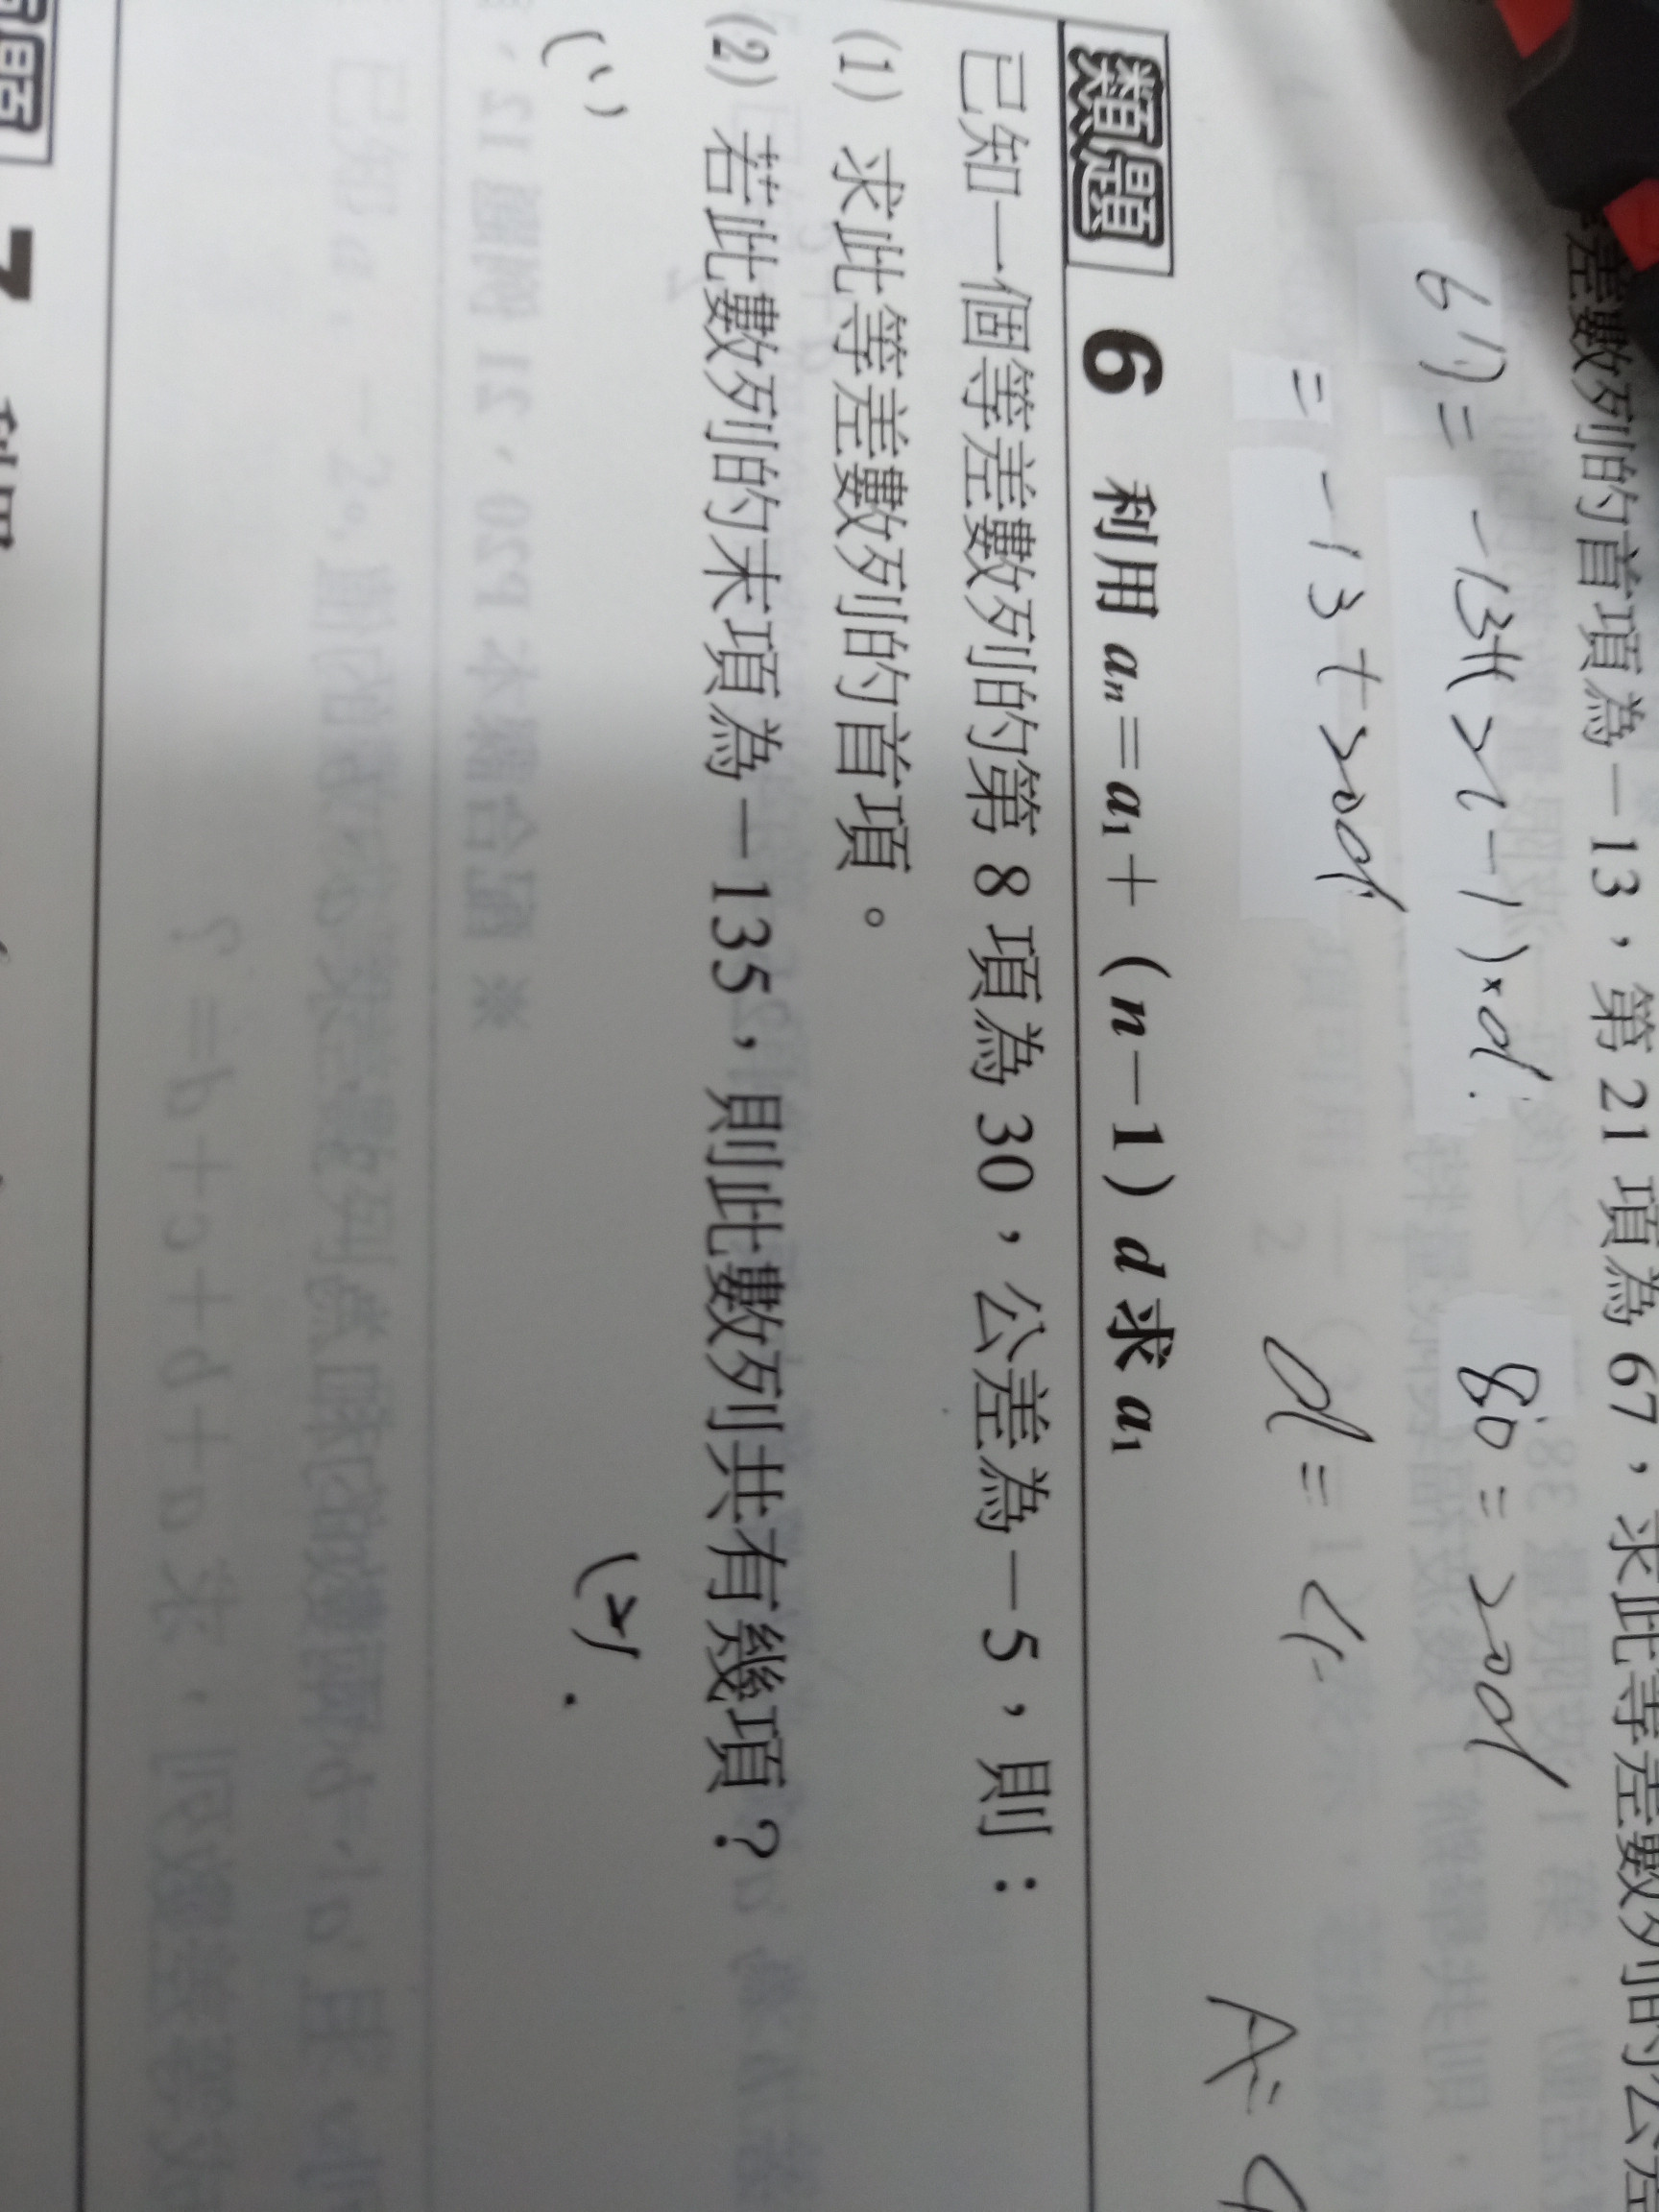 差數列的首項為－13，第 21 項為 67，求此等差數列的公差
67 = -13+(21-1)×d.
80 = 20d
= -13+20d
d = 4.
A: 4
類題 6 利用 aₙ＝a₁＋(n－1) d 求 a₁
已知一個等差數列的第 8 項為 30，公差為－5，則：
(1) 求此等差數列的首項。
(2) 若此數列的末項為－135，則此數列共有幾項？
(1)
(2).
7 利用